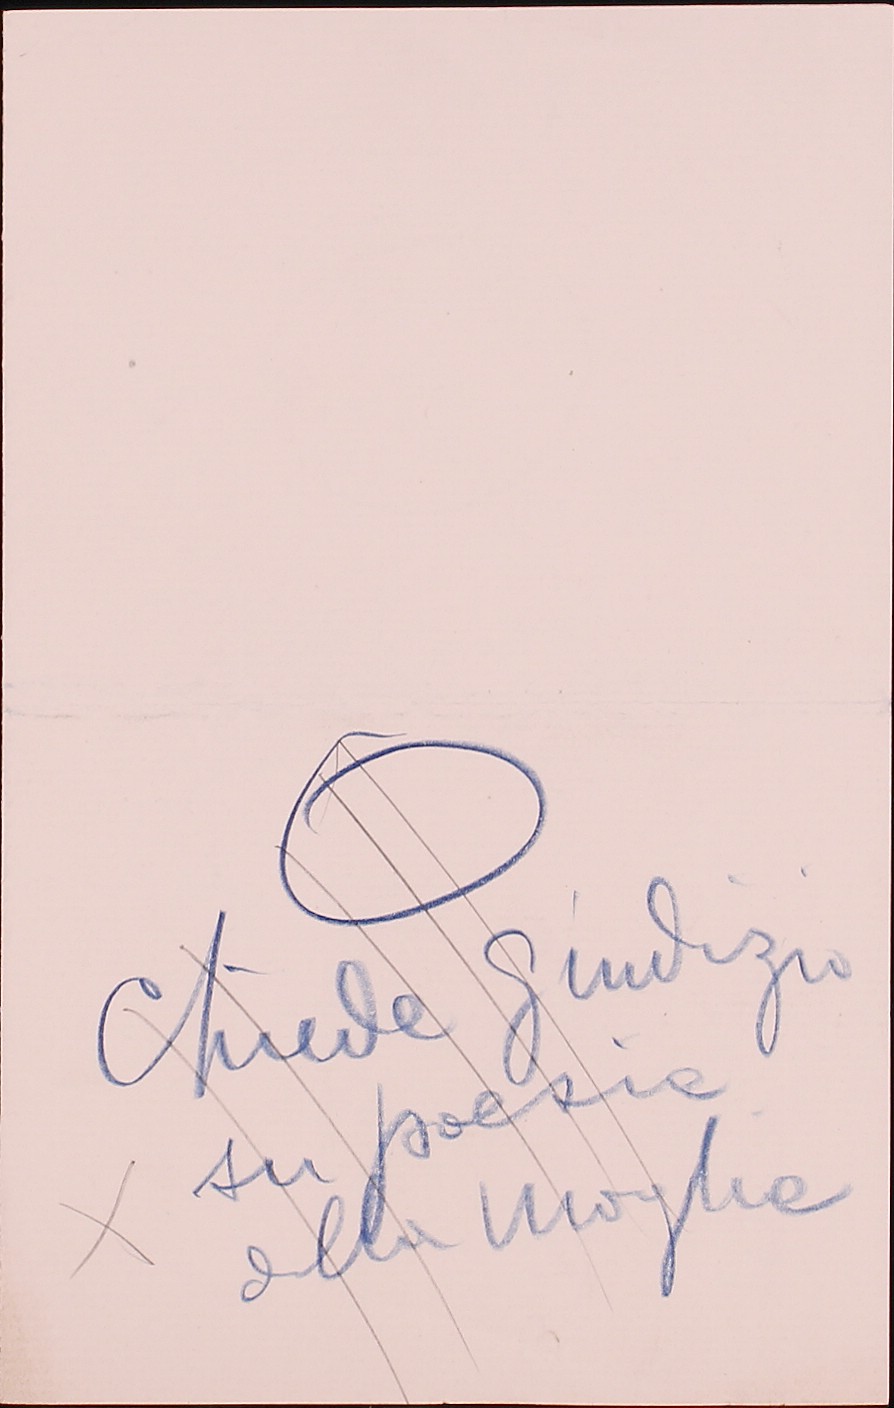 Chiede giudizio
su poesie
della moglie